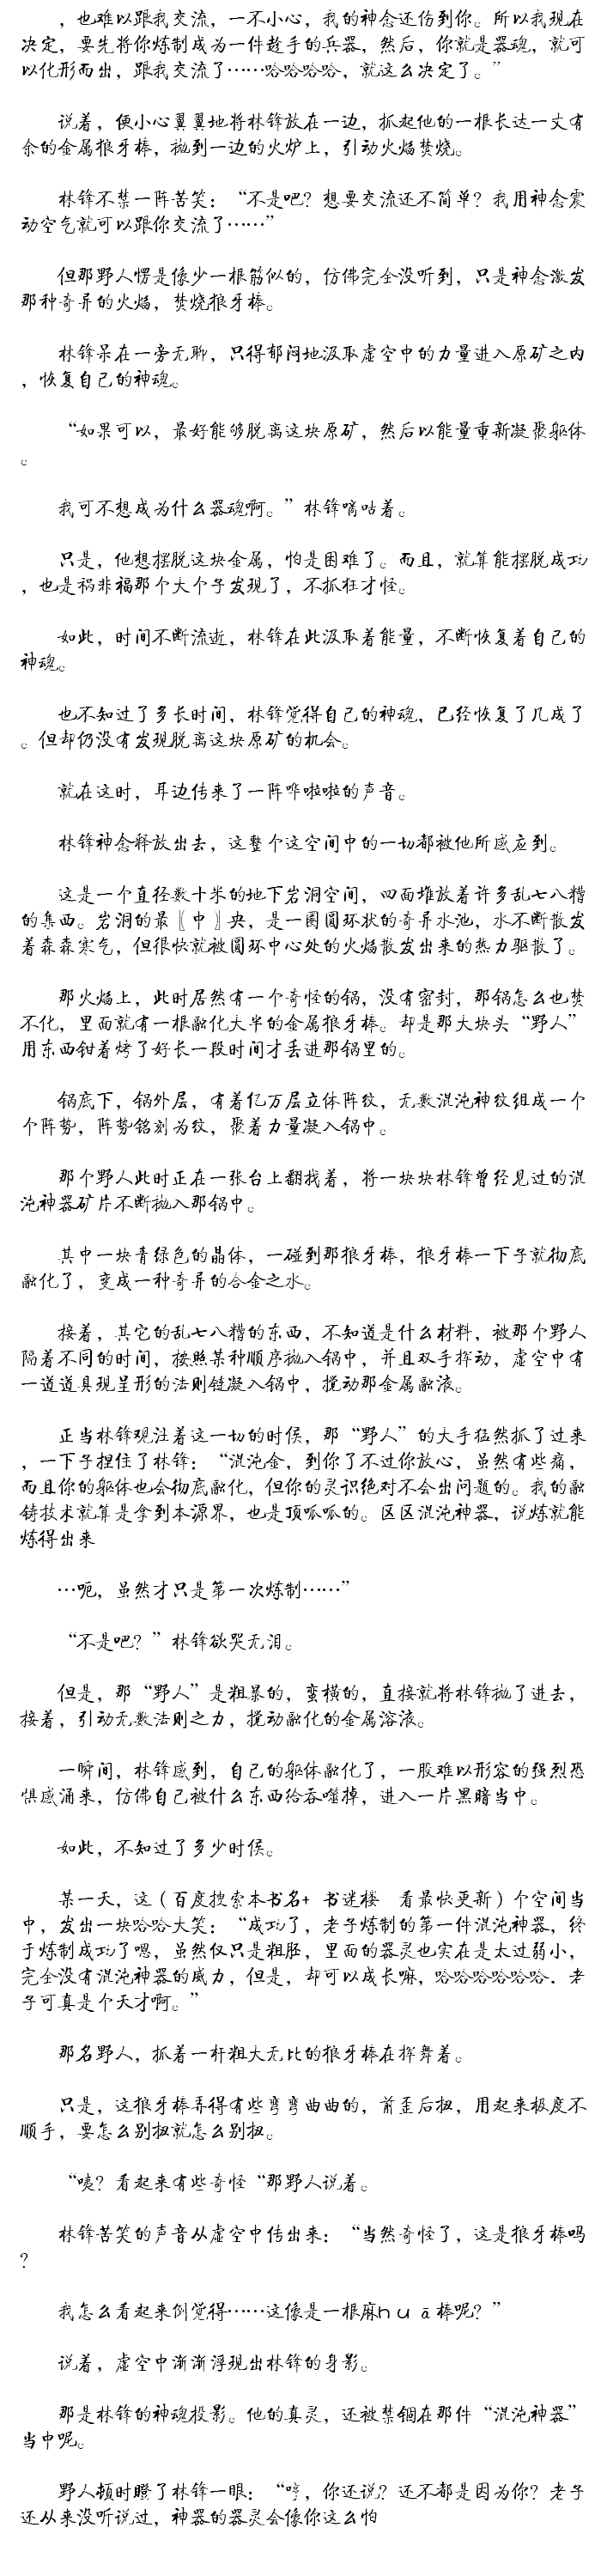 ，也难以跟我交流，一不小心，我的神念还伤到你。所以我现在
决定，要先将你炼制成为一件趁手的兵器，然后，你就是器魂，就可
以化形而出，跟我交流了……哈哈哈哈，就这么决定了。”
说着，便小心翼翼地将林锋放在一边，抓起他的一根长达一丈有
余的金属狼牙棒，抛到一边的火炉上，引动火焰焚烧。
林锋不禁一阵苦笑：“不是吧？想要交流还不简单？我用神念震
动空气就可以跟你交流了……”
但那野人愣是像少一根筋似的，仿佛完全没听到，只是神念激发
那种奇异的火焰，焚烧狼牙棒。
林锋呆在一旁无聊，只得郁闷地汲取虚空中的力量进入原矿之内
，恢复自己的神魂。
“如果可以，最好能够脱离这块原矿，然后以能量重新凝聚躯体
。
我可不想成为什么器魂啊。”林锋嘀咕着。
只是，他想摆脱这块金属，怕是困难了。而且，就算能摆脱成功
，也是祸非福那个大个子发现了，不抓狂才怪。
如此，时间不断流逝，林锋在此汲取着能量，不断恢复着自己的
神魂。
也不知过了多长时间，林锋觉得自己的神魂，已经恢复了几成了
。但却仍没有发现脱离这块原矿的机会。
就在这时，耳边传来了一阵哗啦啦的声音。
林锋神念释放出去，这整个这空间中的一切都被他所感应到。
这是一个直径数十米的地下岩洞空间，四面堆放着许多乱七八糟
的东西。岩洞的最〖中〗央，是一圈圆环状的奇异水池，水不断散发
着森森寒气，但很快就被圆环中心处的火焰散发出来的热力驱散了。
那火焰上，此时居然有一个奇怪的锅，没有密封，那锅怎么也焚
不化，里面就有一根融化大半的金属狼牙棒。却是那大块头“野人”
用东西钳着烤了好长一段时间才丢进那锅里的。
锅底下，锅外层，有着亿万层立体阵纹，无数混沌神纹组成一个
个阵势，阵势铭刻为纹，聚着力量凝入锅中。
那个野人此时正在一张台上翻找着，将一块块林锋曾经见过的混
沌神器矿片不断抛入那锅中。
其中一块青绿色的晶体，一碰到那狼牙棒，狼牙棒一下子就彻底
融化了，变成一种奇异的合金之水。
接着，其它的乱七八糟的东西，不知道是什么材料，被那个野人
隔着不同的时间，按照某种顺序抛入锅中，并且双手挥动，虚空中有
一道道具现呈形的法则链凝入锅中，搅动那金属融液。
正当林锋观注着这一切的时候，那“野人”的大手猛然抓了过来
，一下子捏住了林锋：“混沌金，到你了不过你放心，虽然有些痛，
而且你的躯体也会彻底融化，但你的灵识绝对不会出问题的。我的融
铸技术就算是拿到本源界，也是顶呱呱的。区区混沌神器，说炼就能
炼得出来
…呃，虽然才只是第一次炼制……”
“不是吧？”林锋欲哭无泪。
但是，那“野人”是粗暴的，蛮横的，直接就将林锋抛了进去，
接着，引动无数法则之力，搅动融化的金属溶液。
一瞬间，林锋感到，自己的躯体融化了，一股难以形容的强烈恐
惧感涌来，仿佛自己被什么东西给吞噬掉，进入一片黑暗当中。
如此，不知过了多少时候。
某一天，这（百度搜索本书名+ 书迷楼 看最快更新）个空间当
中，发出一块哈哈大笑：“成功了，老子炼制的第一件混沌神器，终
于炼制成功了嗯，虽然仅只是粗胚，里面的器灵也实在是太过弱小，
完全没有混沌神器的威力，但是，却可以成长嘛，哈哈哈哈哈哈．老
子可真是个天才啊。”
那名野人，抓着一杆粗大无比的狼牙棒在挥舞着。
只是，这狼牙棒弄得有些弯弯曲曲的，前歪后扭，用起来极度不
顺手，要怎么别扭就怎么别扭。
“咦？看起来有些奇怪“那野人说着。
林锋苦笑的声音从虚空中传出来：“当然奇怪了，这是狼牙棒吗
？
我怎么看起来倒觉得……这像是一根麻huā棒呢？”
说着，虚空中渐渐浮现出林锋的身影。
那是林锋的神魂投影。他的真灵，还被禁锢在那件“混沌神器”
当中呢。
野人顿时瞪了林锋一眼：“哼，你还说？还不都是因为你？老子
还从来没听说过，神器的器灵会像你这么怕